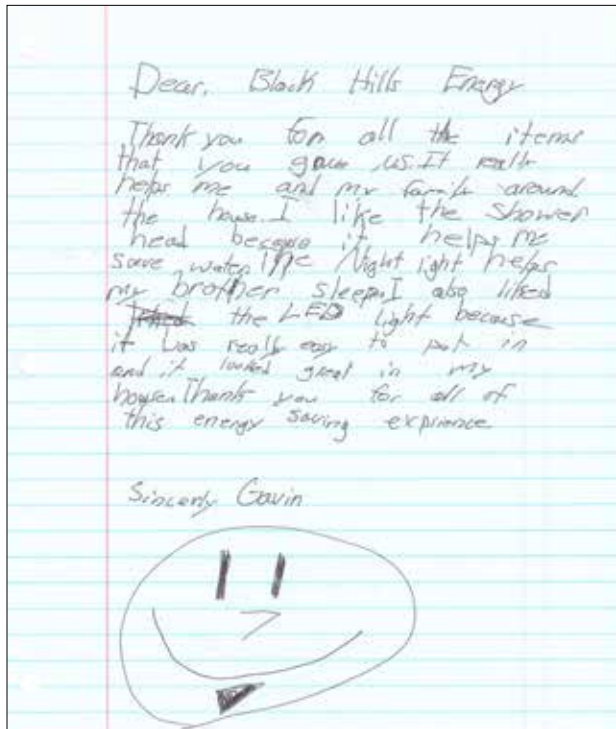 Dear, Black Hills Energy
Thank you for all the items
that you gave us. It really
helps me and my family around
the house. I like the shower
head because it helps me
save water. The Night light helps
my brother sleep. I also liked
the LED light because
it was really easy to put in
and it looked great in my
house. Thank you for all of
this energy saving exprience
Sincerly Gavin